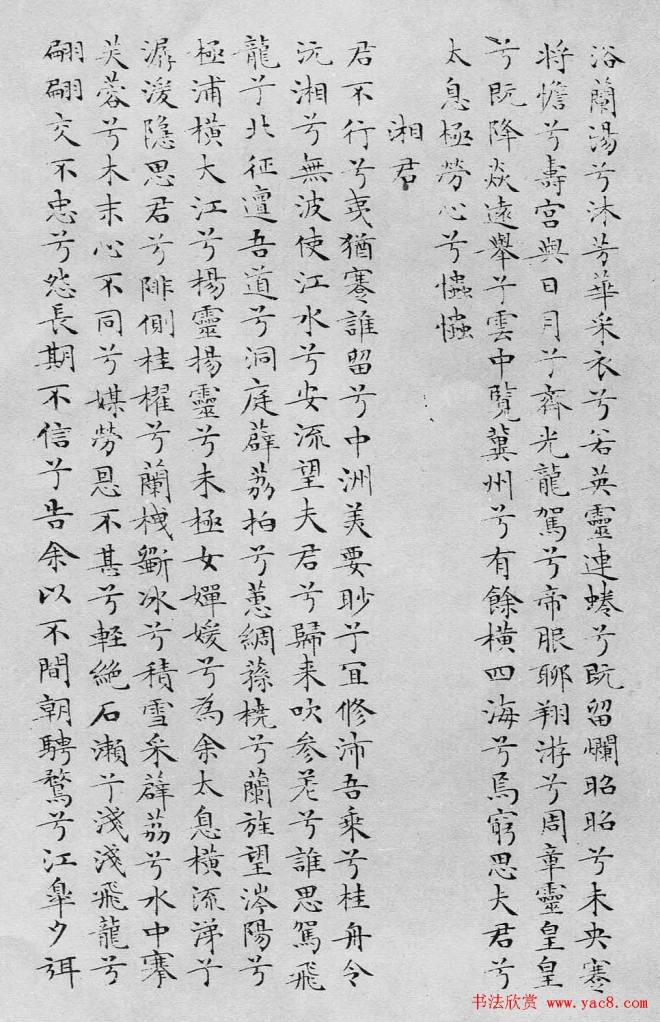 浴蘭湯兮沐芳華采衣兮若英靈連蜷兮既留爛昭昭兮未央蹇
将憺兮壽宮與日月兮齊光龍駕兮帝服聊翔游兮周章靈皇皇
兮既降猋遠舉兮雲中覧冀州兮有餘橫四海兮焉窮思夫君兮
太息極勞心兮忡忡
湘君
君不行兮夷猶蹇誰留兮中洲美要眇兮宜修沛吾乘兮桂舟令
沅湘兮無波使江水兮安流望夫君兮歸来吹参差兮誰思駕飛
龍兮北征邅吾道兮洞庭薜荔拍兮蕙綢蓀橈兮蘭旌望涔陽兮
極浦橫大江兮楊靈楊靈兮未極女嬋媛兮為余太息橫流涕兮
潺湲隱思君兮陫側桂櫂兮蘭枻斲冰兮積雪采薜荔兮水中搴
芙蓉兮木末心不同兮媒勞恩不甚兮軽絶石瀬兮淺淺飛龍兮
翩翩交不忠兮怨長期不信兮告余以不閒朝騁騖兮江皋夕弭
书法欣赏 www.yac8.com